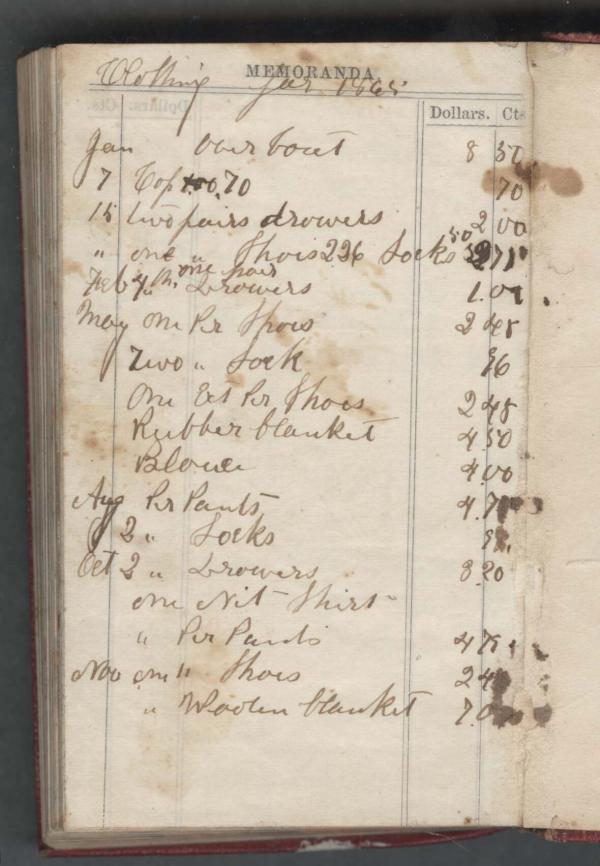 MEMORANDA
Clothing for 1865
Dollars. Cts
Jan over cout 8 50
7 Cap 70 70
15 two pairs drowers 2 00
" one " Shois 226 Socks 50
one pair
Feb 4th Drowers 1.00
May one Pr Shois 2 48
Two " Sock 96
One Ext Pr Shois 2 48
Rubber blanket 4 50
Blouce 4.00
Aug Pr Pants 4.75
2 " Socks
Oct 2 " Drowers 3 20
one Nit Shirt
" Per Pants 4 75
Nov one " Shois 2 4
" Woolen blanket 7.0